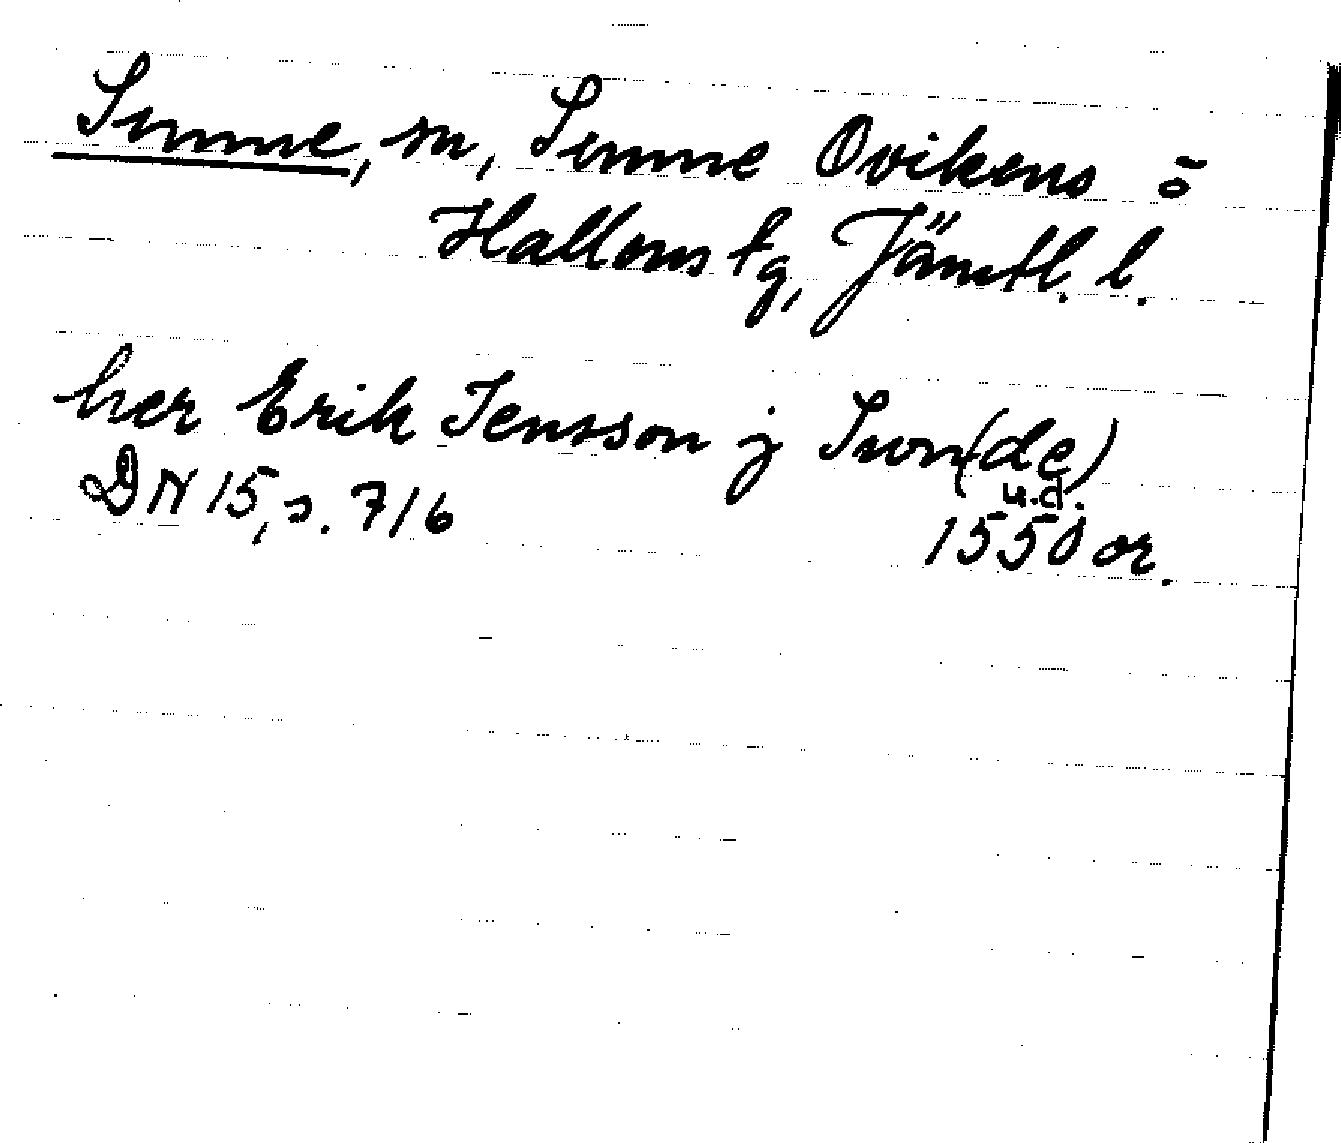 Sunne, sn, Sunne Ovikens o
Hallens tg, Jämtl. l.
her Erik Jensson j Swn(de)
DN 15, s. 716 u.d.
1550 or.